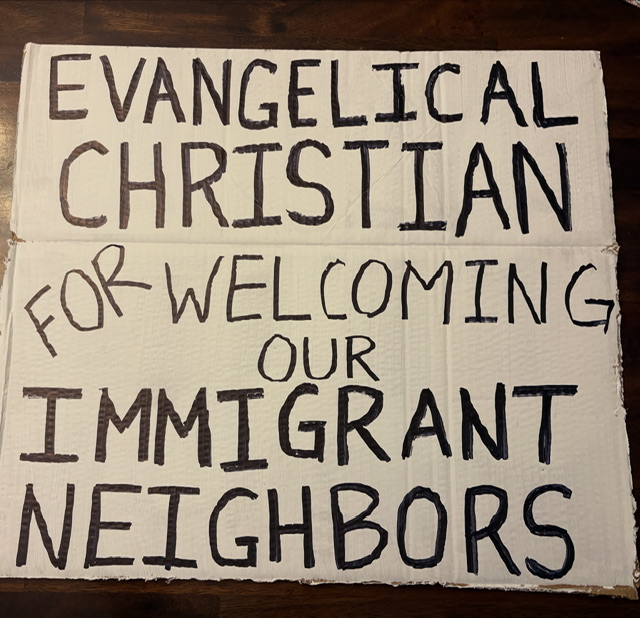 EVANGELICAL
CHRISTIAN
FOR WELCOMING
OUR
IMMIGRANT
NEIGHBORS